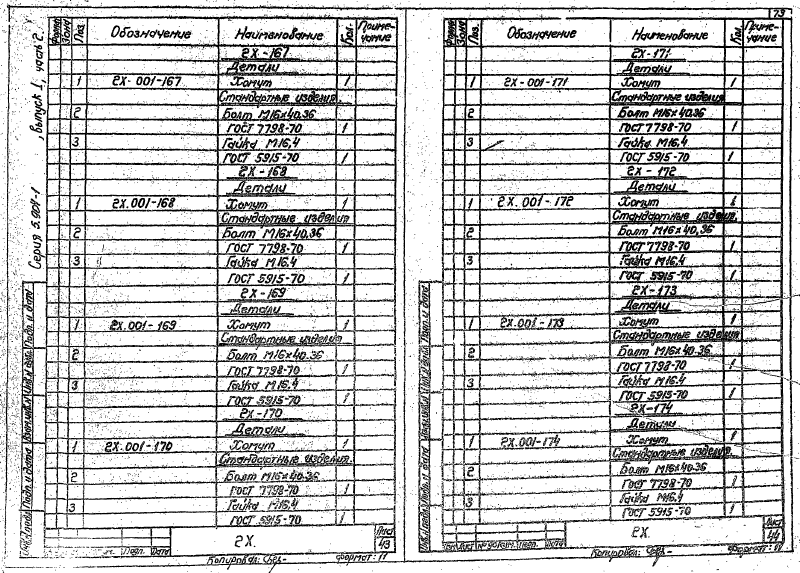 Серия 5.904-1, Выпуск 1, часть 2.
Форм. Зона Поз. Обозначение Наименование Кол. Примечание
2X-167
Детали
1 2X.001-167 Хомут 1
Стандартные изделия.
2 Болт М16х40.36
ГОСТ 7798-70 1
3 Гайка М16.4
ГОСТ 5915-70 1
2X-168
Детали
1 2X.001-168 Хомут 1
Стандартные изделия
2 Болт М16х40.36
ГОСТ 7798-70 1
3 Гайка М16.4
ГОСТ 5915-70 1
2X-169
Детали
1 2X.001-169 Хомут 1
Стандартные изделия
2 Болт М16х40.36
ГОСТ 7798-70 1
3 Гайка М16.4
ГОСТ 5915-70 1
2X-170
Детали
1 2X.001-170 Хомут 1
Стандартные изделия.
2 Болт М16х40.36
ГОСТ 7798-70 1
3 Гайка М16.4
ГОСТ 5915-70 1
Подп. и дата
Подп. Дата
2X.
Лист
43
Копировал:
Формат: 11
73
Форм. Зона Поз. Обозначение Наименование Кол. Примечание
2X-171
Детали
1 2X-001-171 Хомут 1
Стандартные изделия
2 Болт М16х40.36
ГОСТ 7798-70 1
3 Гайка М16.4
ГОСТ 5915-70 1
2X-172
Детали
1 2X.001-172 Хомут 1
Стандартные изделия.
2 Болт М16х40.36
ГОСТ 7798-70 1
3 Гайка М16.4
ГОСТ 5915-70 1
2X-173
Детали
1 2X.001-173 Хомут 1
Стандартные изделия
2 Болт М16х40.36
ГОСТ 7798-70 1
3 Гайка М16.4
ГОСТ 5915-70 1
2X-174
Детали
1 2X.001-174 Хомут 1
Стандартные изделия.
2 Болт М16х40.36
ГОСТ 7798-70 1
3 Гайка М16.4
ГОСТ 5915-70 1
Подп. и дата
Изм. Лист № докум. Подп. Дата
2X.
Лист
44
Копировал:
Формат: 11